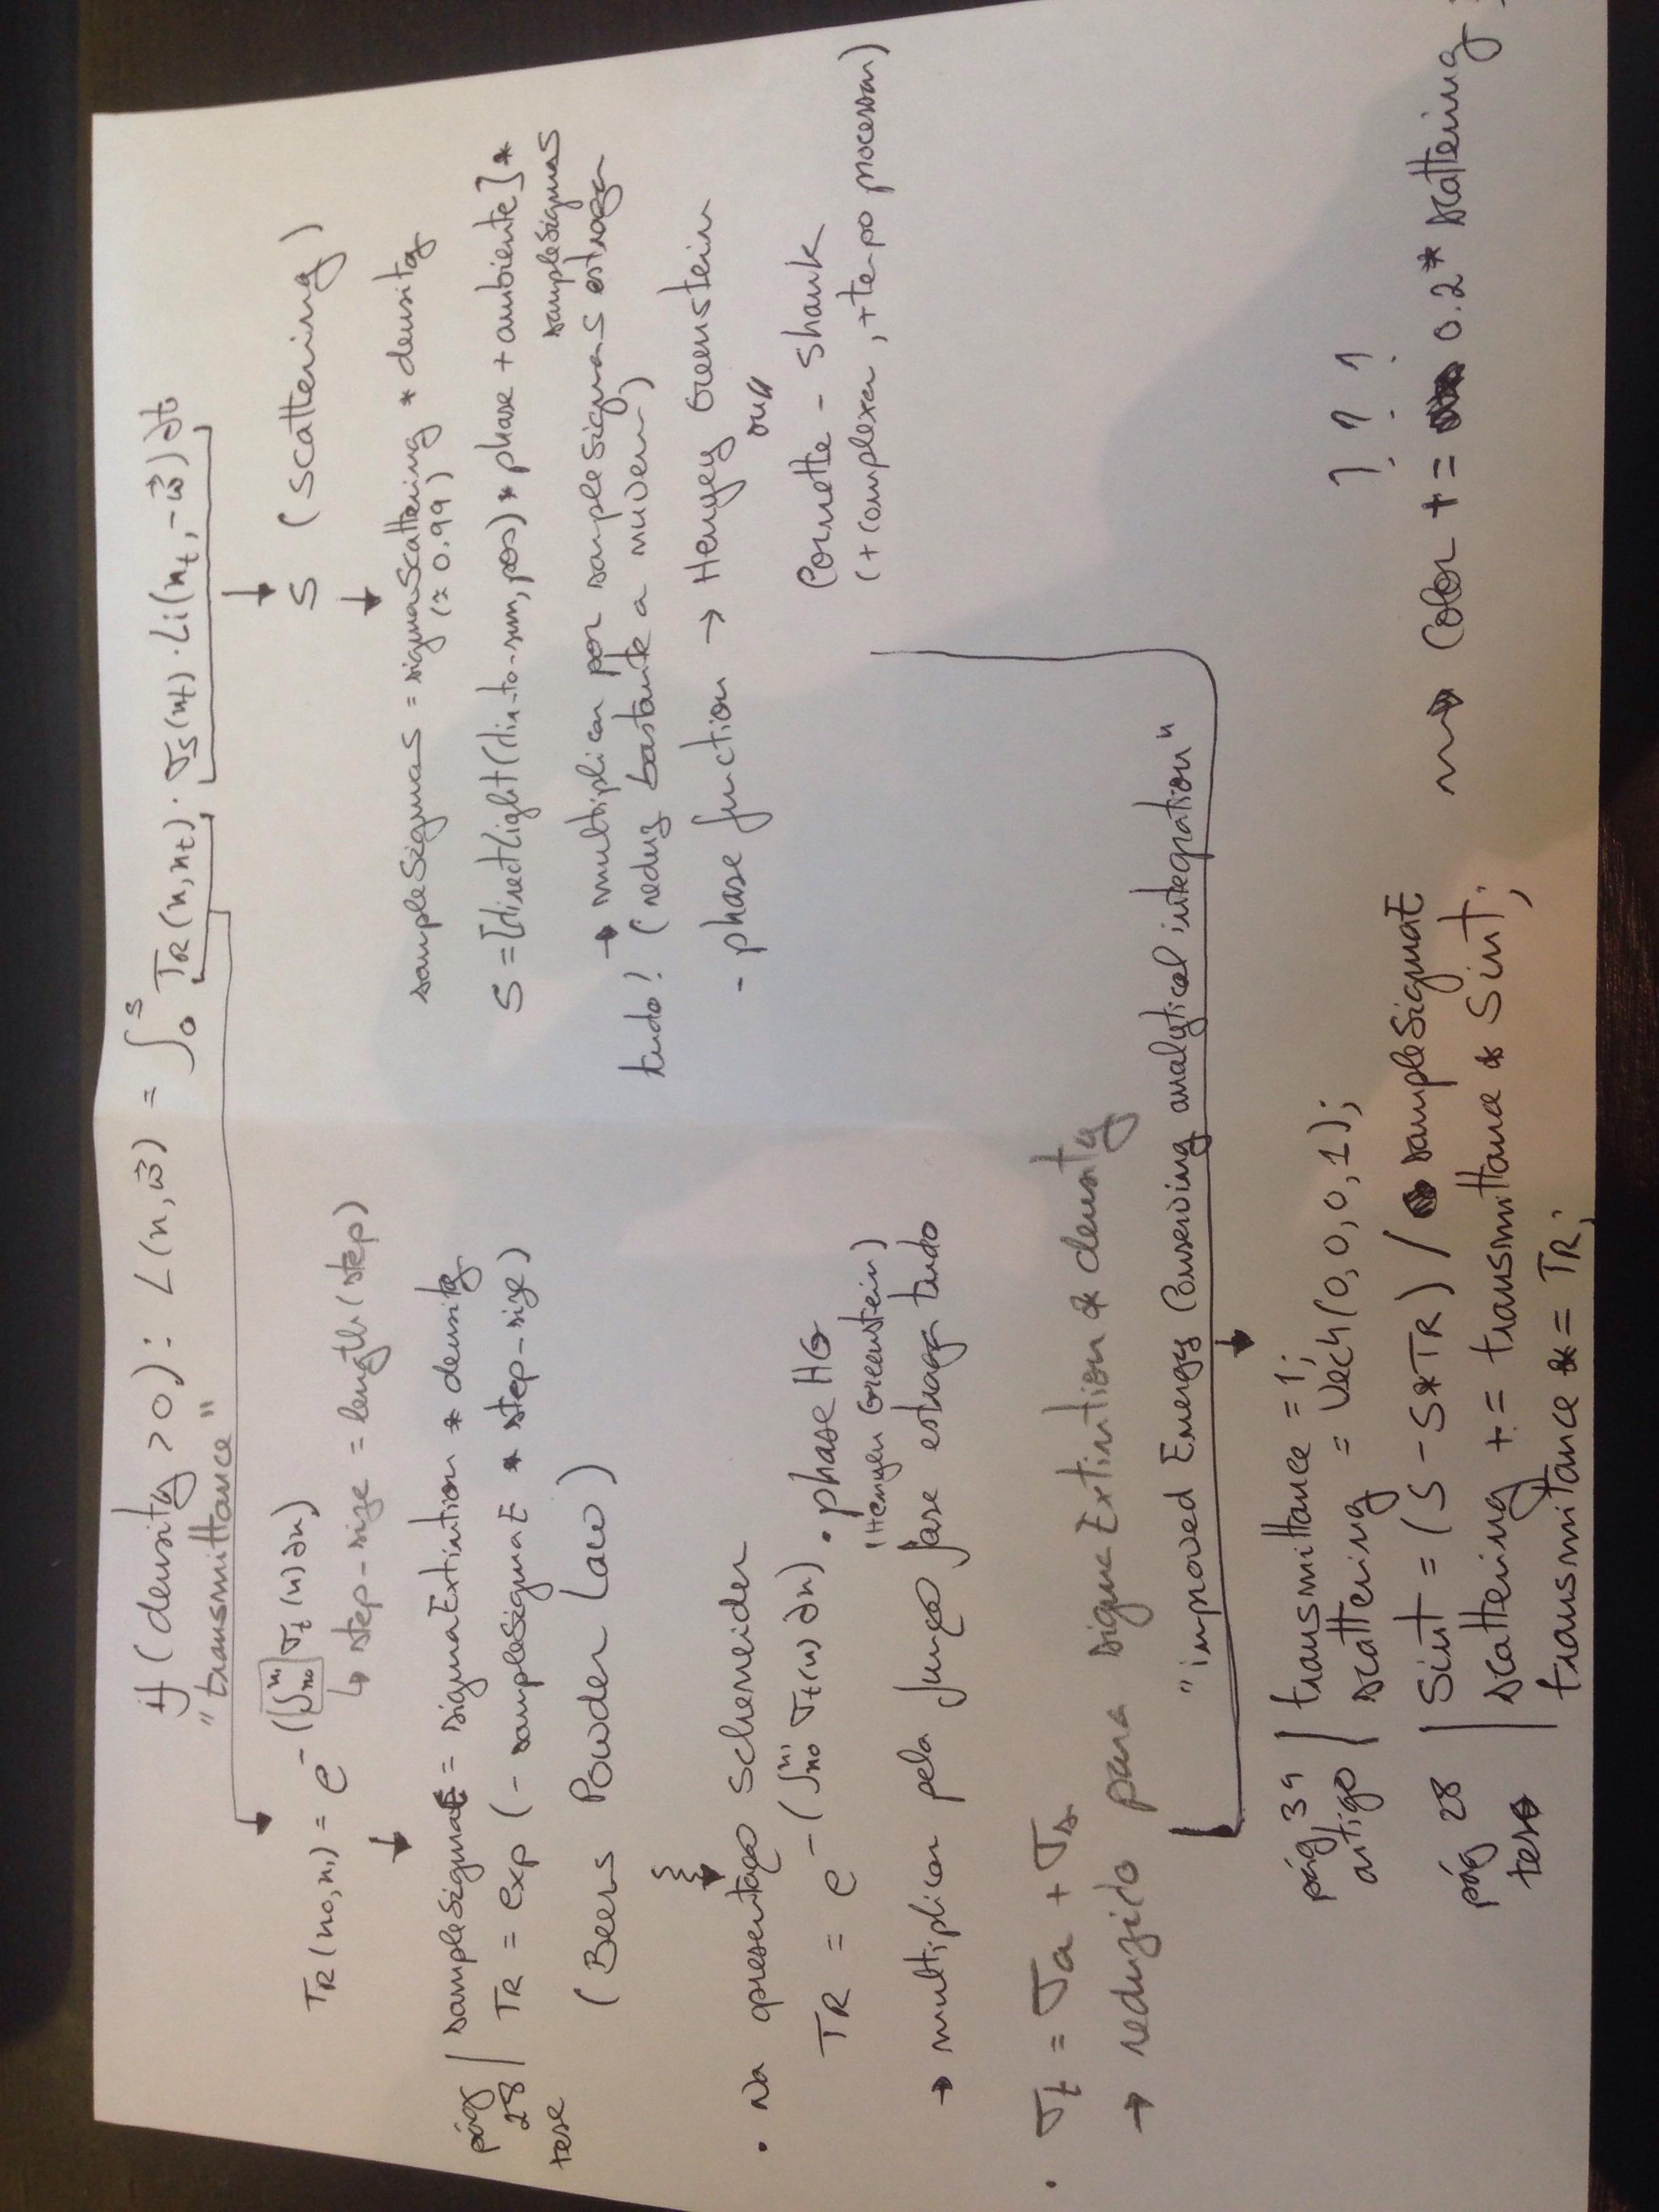 if (density > 0): L(x, ω⃗) = ∫₀ˢ TR(x, xt) · σs(xt) · Li(xt, -ω⃗) ∂t
"transmittance"
TR(x0, x1) = e^-(∫x0^x1 σt(x) ∂x)
↳ step-size = length(step)
pág 28 tese
sampleSigmaE = sigmaExtintion * density
TR = exp (- sampleSigmaE * step-size)
(Beers Powder Law)
• Na apresentação Schneider
TR = e^-(∫x0^x1 σt(x) ∂x) · phase HG
(Henyen Greenstein)
→ multiplicar pela função fase estraga tudo
• σt = σa + σs
→ reduzido para sigmaExtintion * density
S (scattering)
sampleSigmaS = sigmaScattering * density
(≈ 0.99)
S = [directLight(dir-to-sun, pos) * phase + ambiente] * sampleSigmaS
→ multiplicar por sampleSigmaS estraga
tudo! (reduz bastante a nuvem)
- phase function → Henyey Greenstein
ou
Cornette - Shank
(+ complexa, + tempo processar)
"improved Energy Conserving analytical integration"
pág 39 artigo
transmittance = 1;
scattering = Vec4(0, 0, 0, 1);
pág 28 tese
Sint = (S - S * TR) / sampleSigmaE
scattering += transmittance * Sint;
transmittance *= TR;
? ? ?
→ Color += 0.2 * scattering;